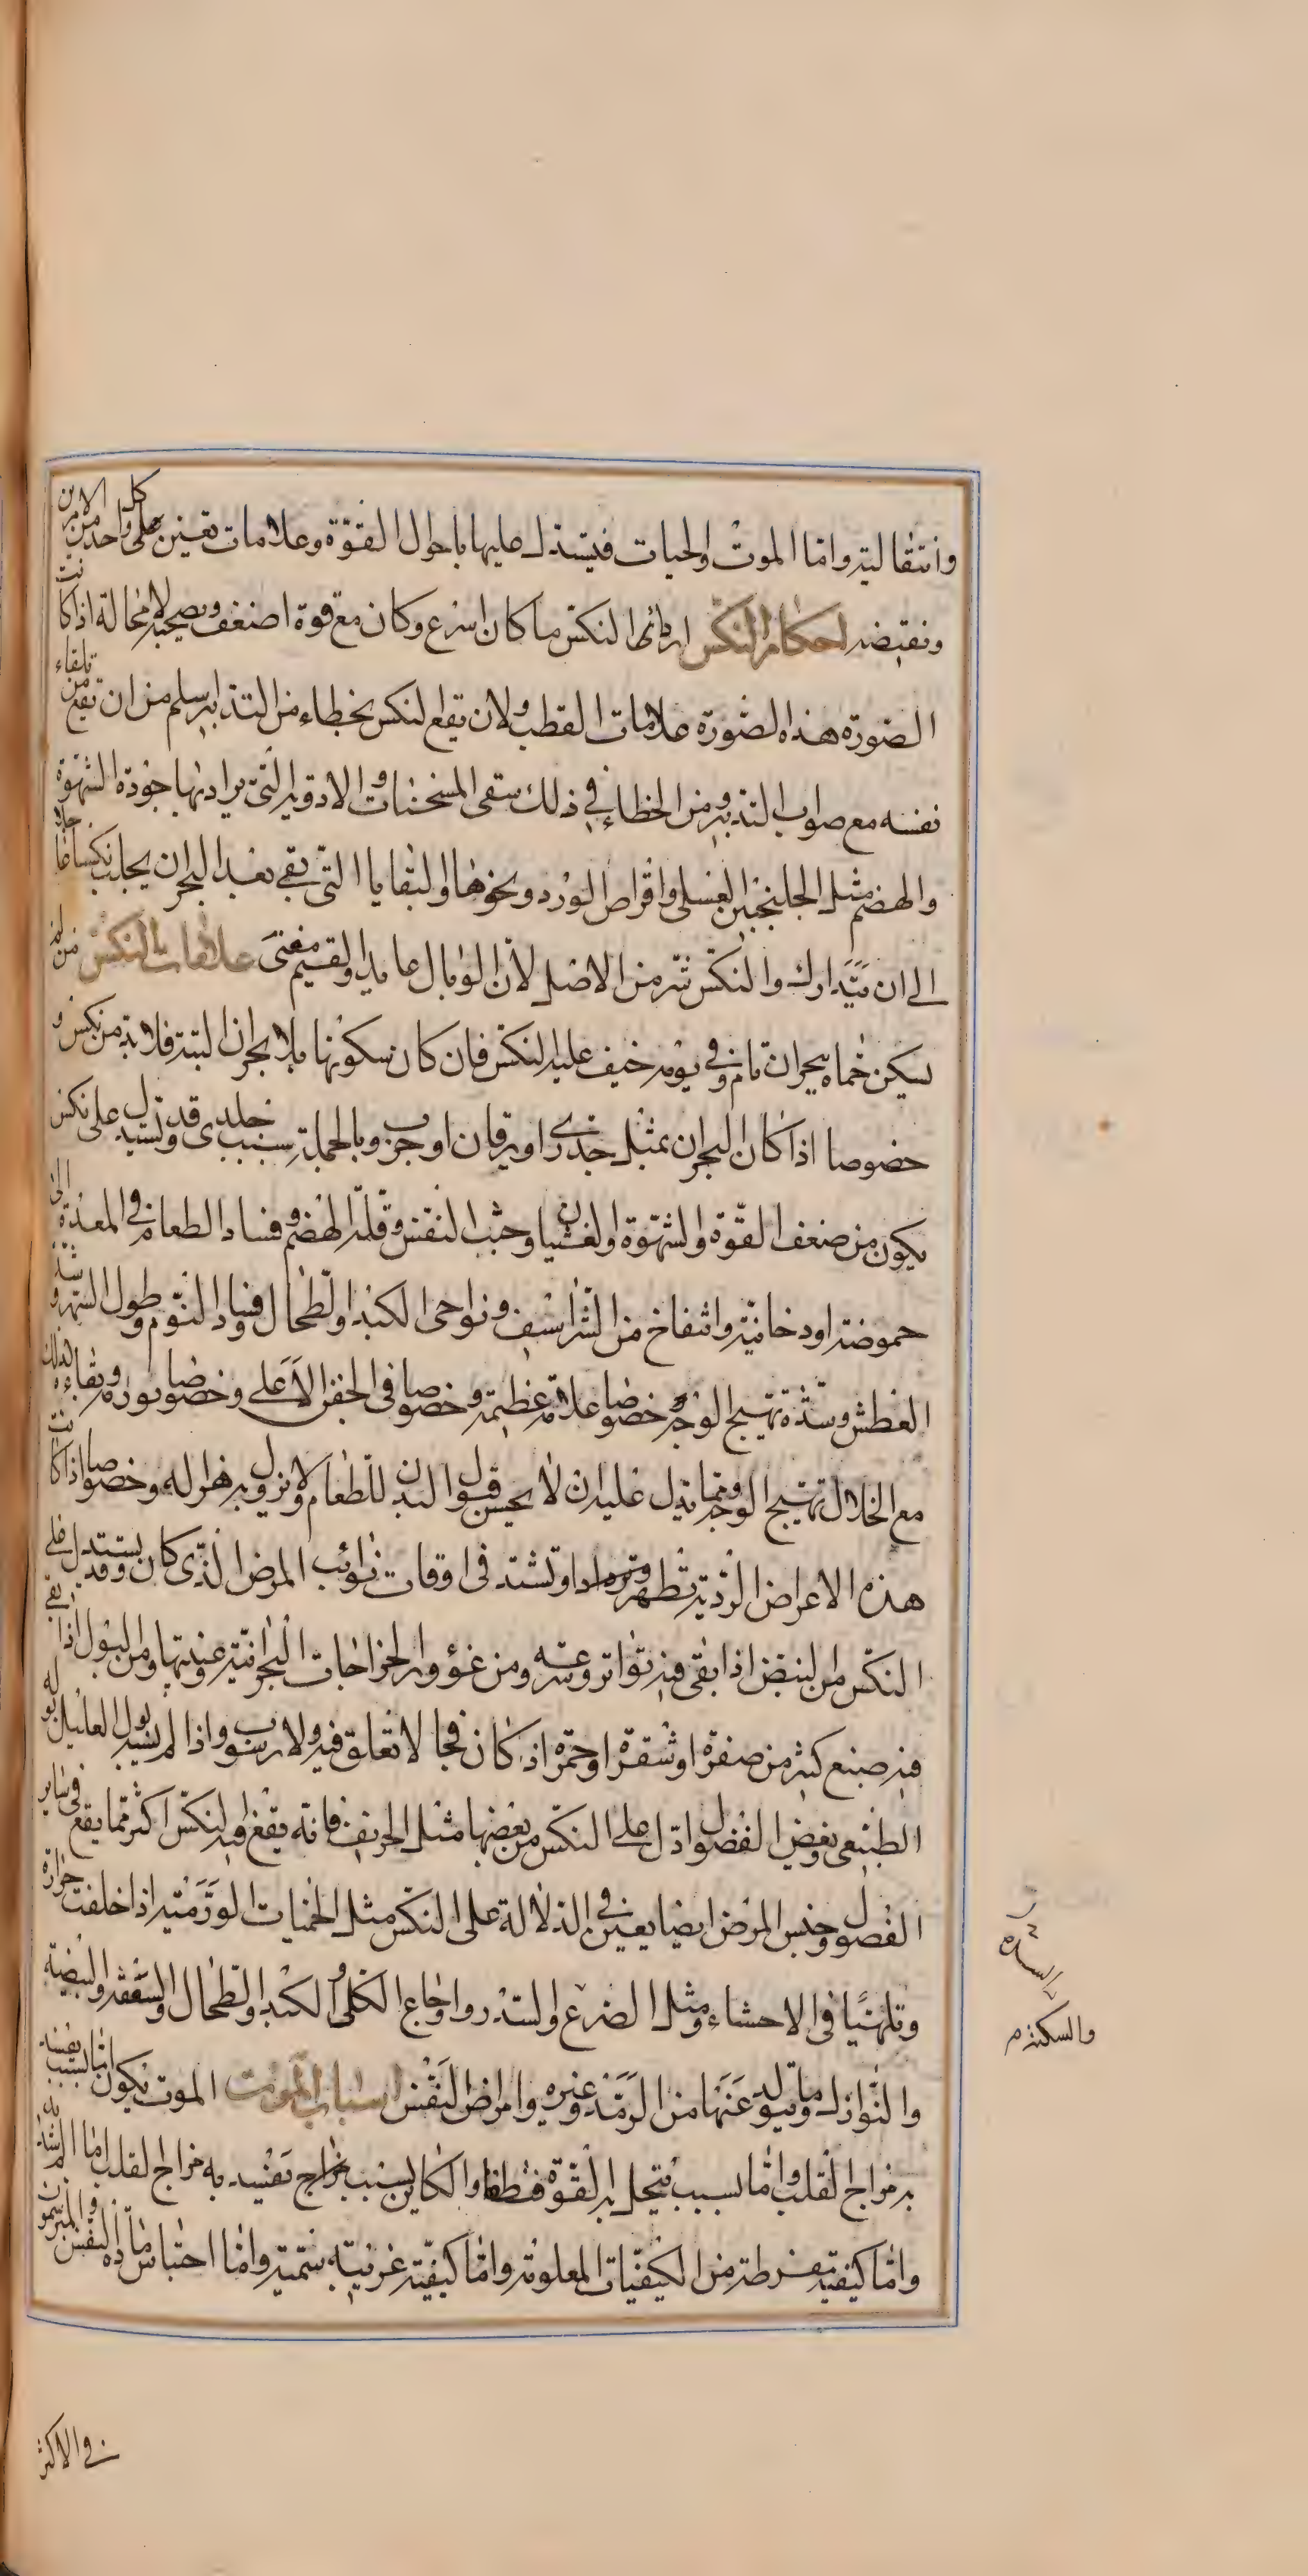 وانتقاليته واما الموت والحيات فيستدل عليها باحوال القوة وعلامات تعين على كل واحد من الامرين
ونقيضه احكام النكس اردائها النكس ما كان اسرع وكان مع قوة اضعف ويصحبه لا محالة اذا كانت
الصورة هذه الصورة علامات القطب ولان يقع النكس بخطاء من التدابير سلم من ان تقع من تلقاء
نفسه مع صواب التدبير ومن الخطاء في ذلك سقى المسخنات والادوية التي يراد بها جودة الشهوة
والهضم مثل الجلنجبين العسلى واقراص الورد ونحوها والبقايا التي تبقى بعد البحران يجلب نكسا
الى ان يتدارك والنكس شر من الاصل لان الوبال عايد والقسيم معنى علامات النكس من لم
يسكن حماه ببحران تام وفي يومه خيف عليه النكس فان كان سكونها بلا بحران البتة فلا بد من نكس و
خصوصا اذا كان البحران بمثل جدرى او يرقان او جرب وبالجملة بسبب جلدى وقد يستدل على نكس
يكون من ضعف القوة والشهوة والغشيان وخبث النفس وقلة الهضم وفساد الطعام في المعدة الى
حموضة او دخانية وانتفاخ من الشراسيف ونواحى الكبد والطحال وفساد النوم وطول السهر وشدة
العطش وشدة تهيج الوجه خصوصا علامة عظيمة وخصوصا في الجفن الاعلى وخصوصا بقاءه كذلك
مع انحلال تهيج الوجه ومما يدل عليه ان لا يحسن قبول البدن للطعام ولا يزول به هزاله وخصوصا اذا كانت
هذه الاعراض الردية تظهر او تشتد في اوقات نوائب المرض الذي كان وقد يستدل على
النكس من النبض اذا بقى فيه تواتر وسرعه ومن غوور الخراجات البحرانية وغيبتها ومن البول اذا بقى
فيه صبغ كثير من صفرة او شقرة او حمرة اذ كان فجا لا تعلق فيه ولا رسوب واذا لم يشبه بول العليل بوله
الطبيعى وبعض الفصول ادل على النكس من بعضها مثل الخريف فانه يقع فيه النكس اكثر مما يقع في ساير
الفصول وجنس المرض ايضا يعين في الدلالة على النكس مثل الحميات الورمية اذا خلفت حرارة
وتلهبا في الاحشاء ومثل الصرع والسدر واوجاع الكلى والكبد والطحال والشقيقة والبيضة
والنوازل وما يتولد عنها من الرمد وغيره وامراض النفس اسباب الموت الموت يكون اما بسبب يفسد
به مزاج القلب واما بسبب يتحلل به القوة فتطفا والكاين بسبب مزاج يفسد به مزاج القلب اما الم شديد
واما كيفية مفرطة من الكيفيات المعلومة واما كيفية غريبة سمية واما احتباس مادة النفس
في الاكثر